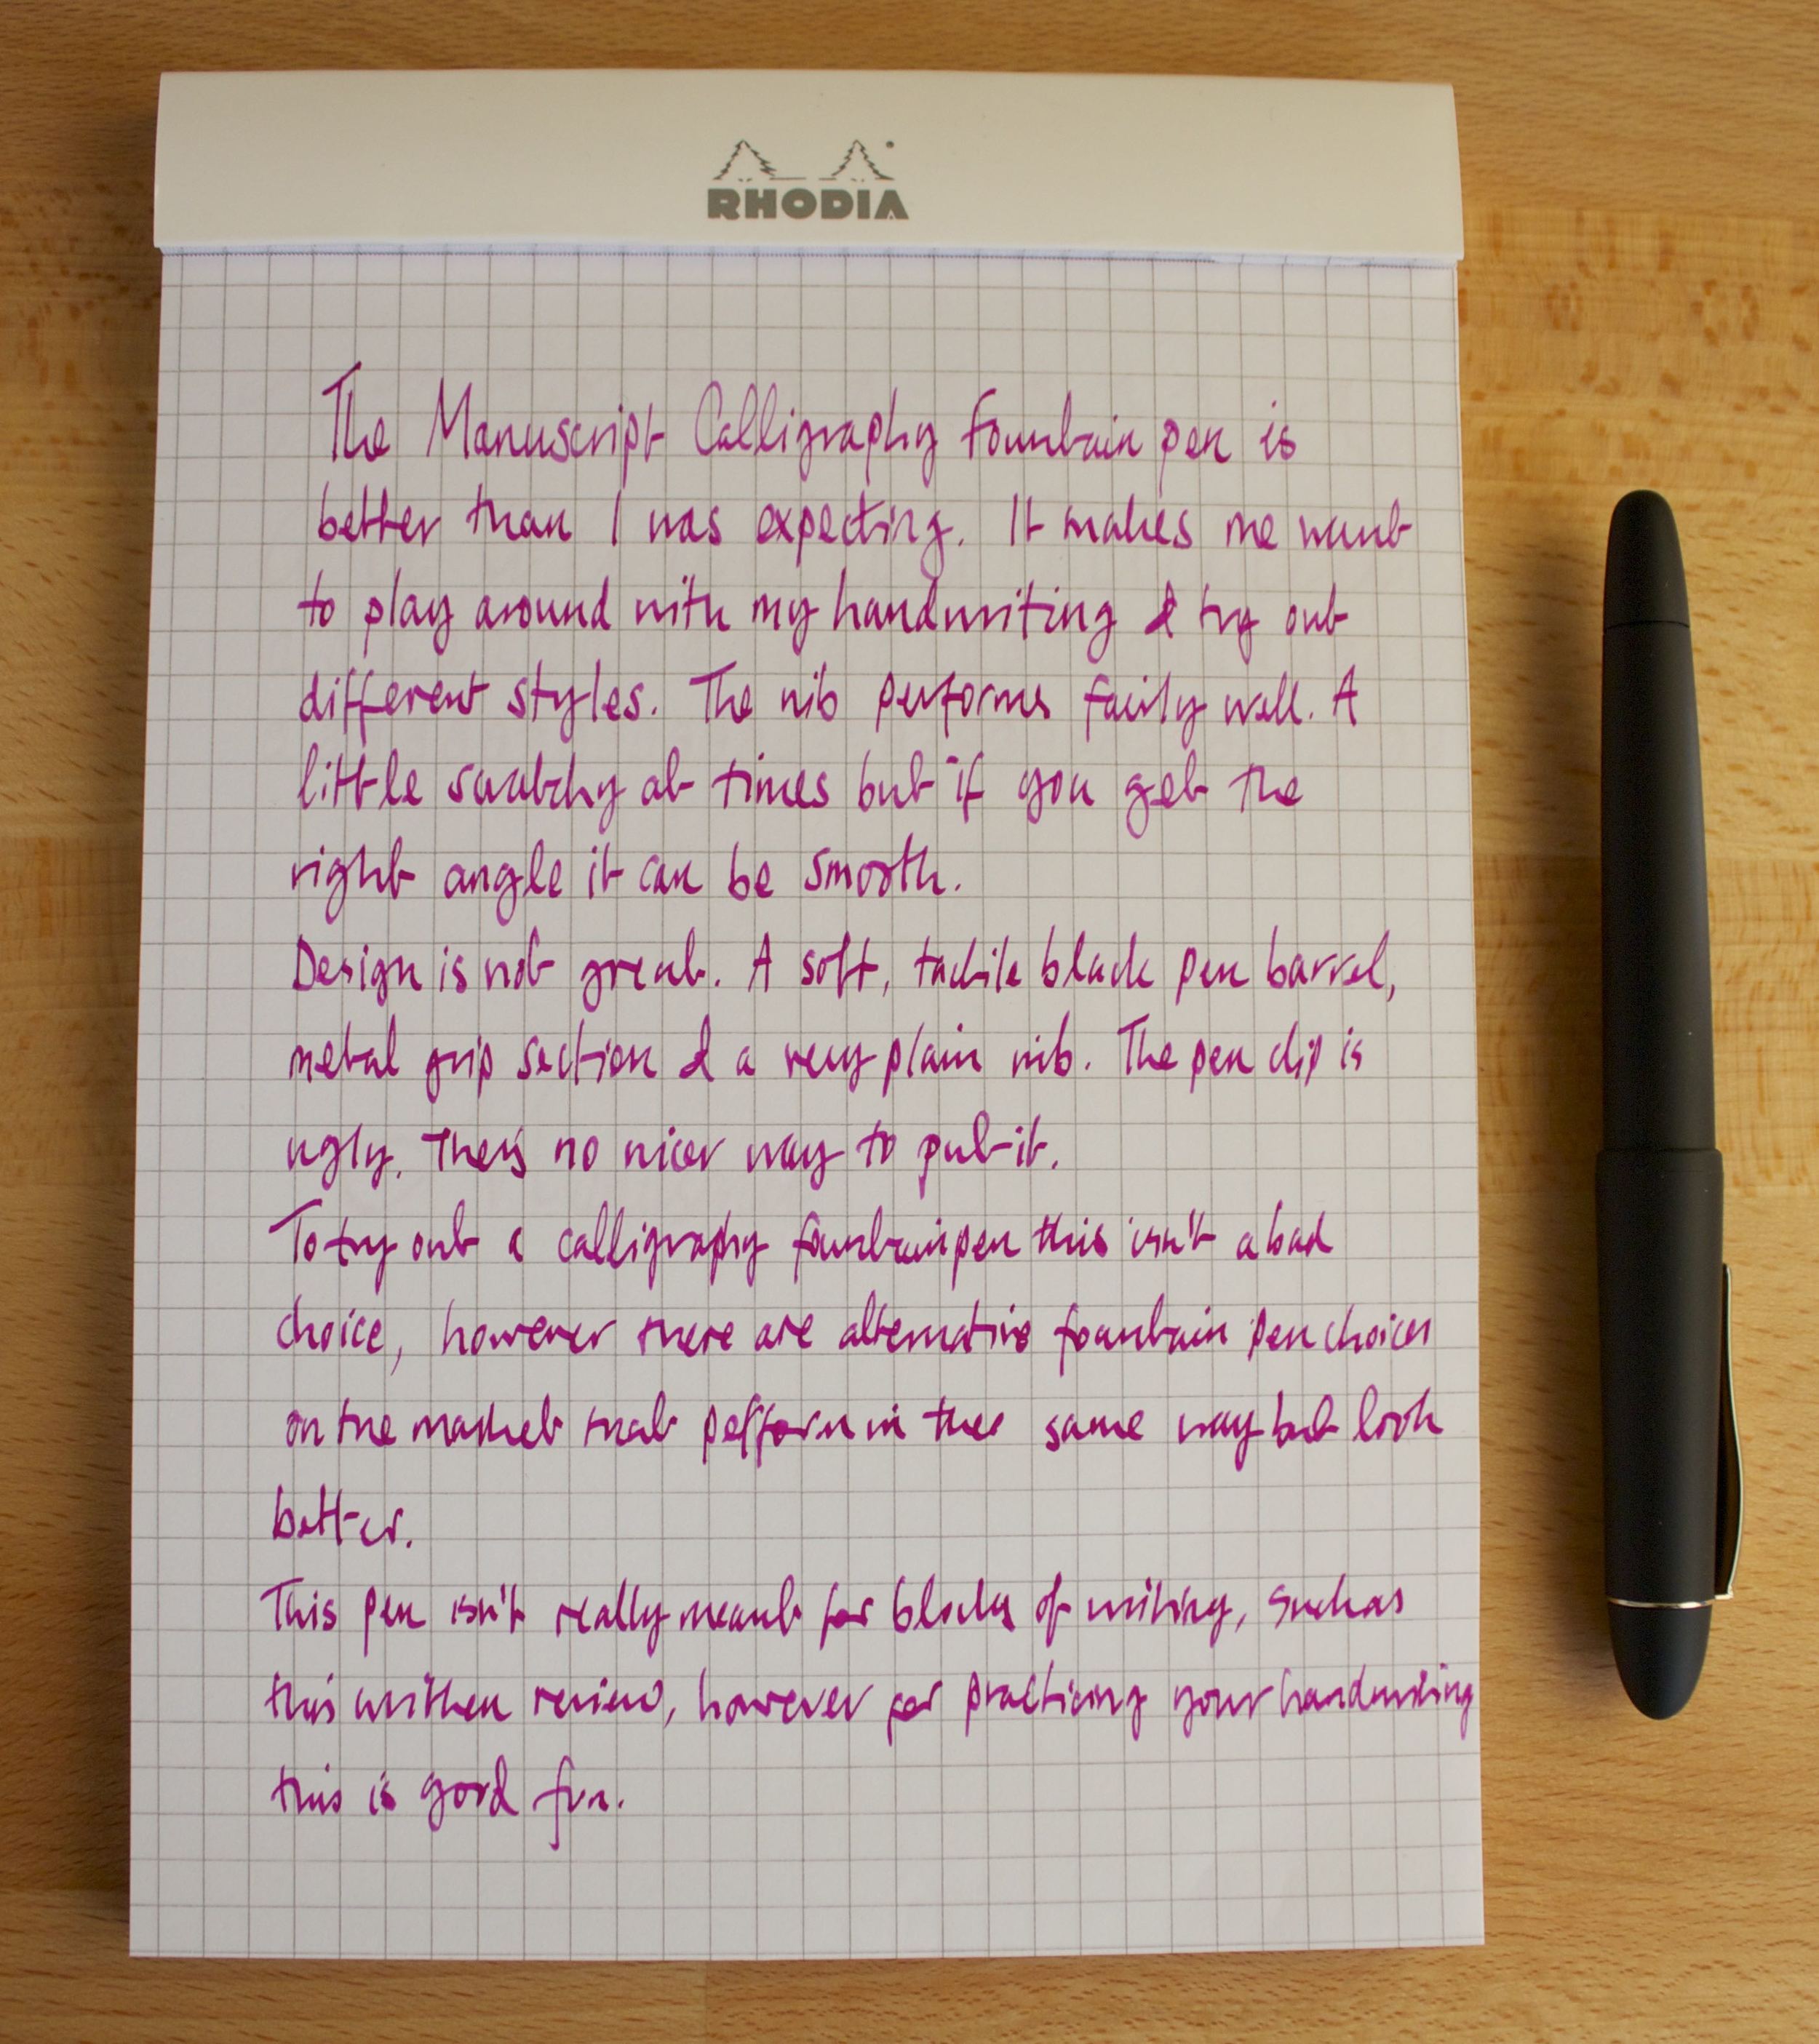 RHODIA
The Manuscript Calligraphy fountain pen is
better than I was expecting. It makes me want
to play around with my handwriting & try out
different styles. The nib performs fairly well. A
little scratchy at times but if you get the
right angle it can be smooth.
Design is not great. A soft, tactile black pen barrel,
metal grip section & a very plain nib. The pen clip is
ugly. There's no nicer way to put it.
To try out a calligraphy fountain pen this isn't a bad
choice, however there are alternative fountain pen choices
on the market that perform in the same way but look
better.
This pen isn't really meant for blocks of writing, such as
this written review, however for practicing your handwriting
this is good fun.